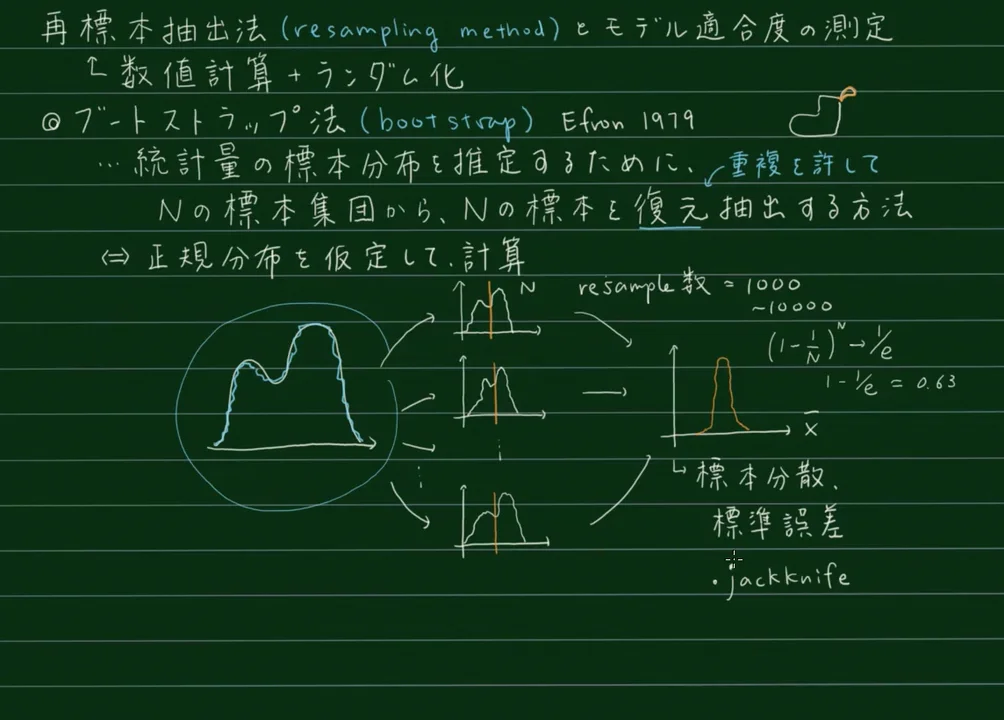 再標本抽出法 (resampling method) とモデル適合度の測定
数値計算 + ランダム化
◎ ブートストラップ法 (bootstrap) Efron 1979
… 統計量の標本分布を推定するために、
重複を許して
Nの標本集団から、Nの標本を復元抽出する方法
⇔ 正規分布を仮定して、計算
N
resample数 = 1000
~10000
(1 - 1/N)^N → 1/e
1 - 1/e = 0.63
x̄
標本分散、
標準誤差
・jackknife